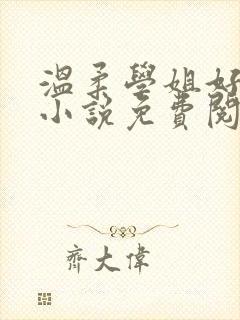 溫柔學姐好
小說免費閱
齊大偉